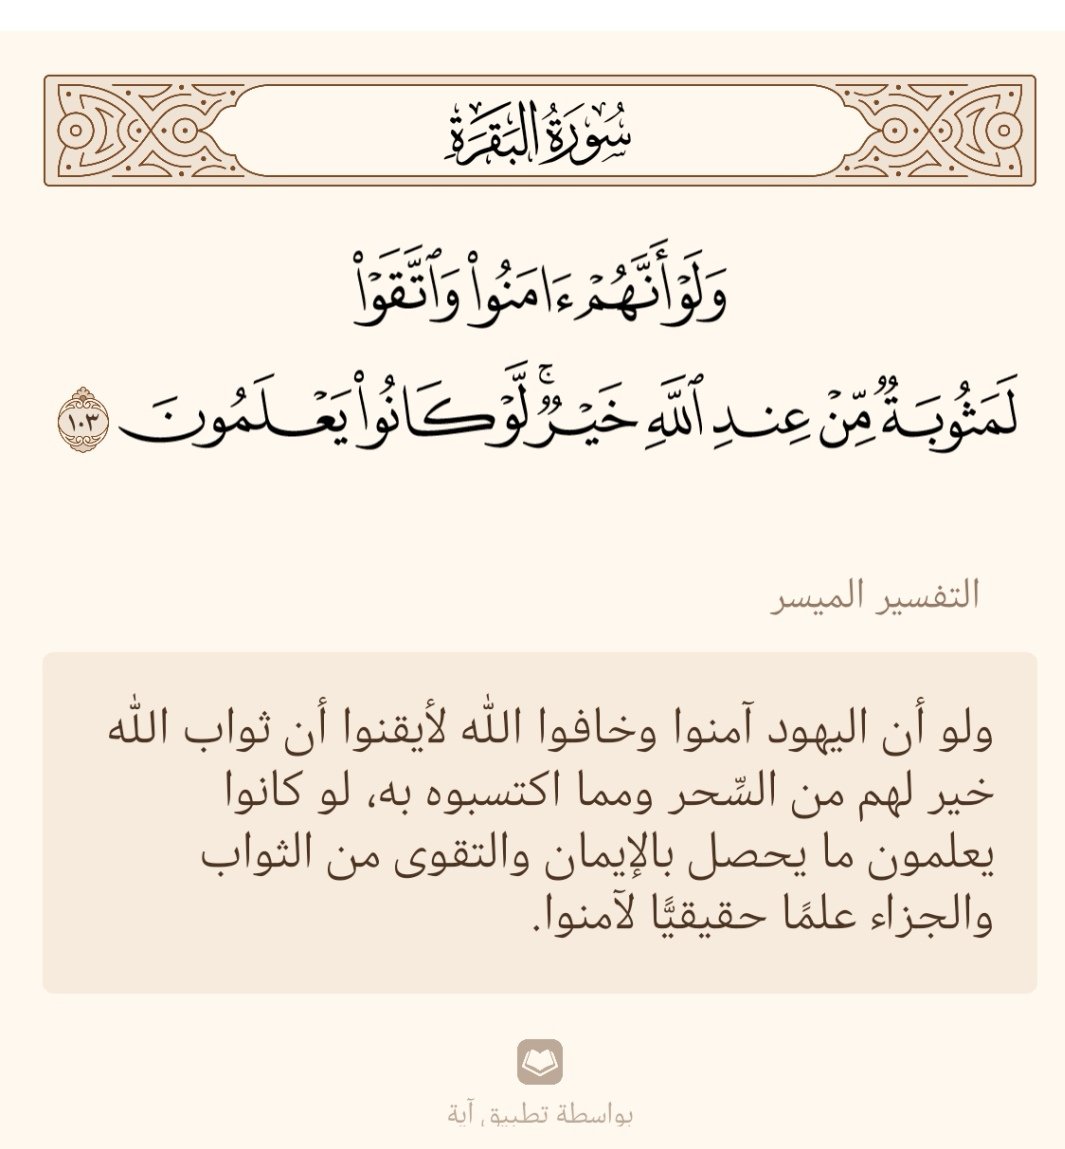 سُورَةُ البَقَرَةِ
وَلَوۡ أَنَّهُمۡ ءَامَنُواْ وَٱتَّقَوۡاْ
لَمَثُوبَةٞ مِّنۡ عِندِ ٱللَّهِ خَيۡرٞۚ لَّوۡ كَانُواْ يَعۡلَمُونَ ١٠٣
التفسير الميسر
ولو أن اليهود آمنوا وخافوا الله لأيقنوا أن ثواب الله
خير لهم من السِّحر ومما اكتسبوه به، لو كانوا
يعلمون ما يحصل بالإيمان والتقوى من الثواب
والجزاء علمًا حقيقيًّا لآمنوا.
بواسطة تطبيق آية